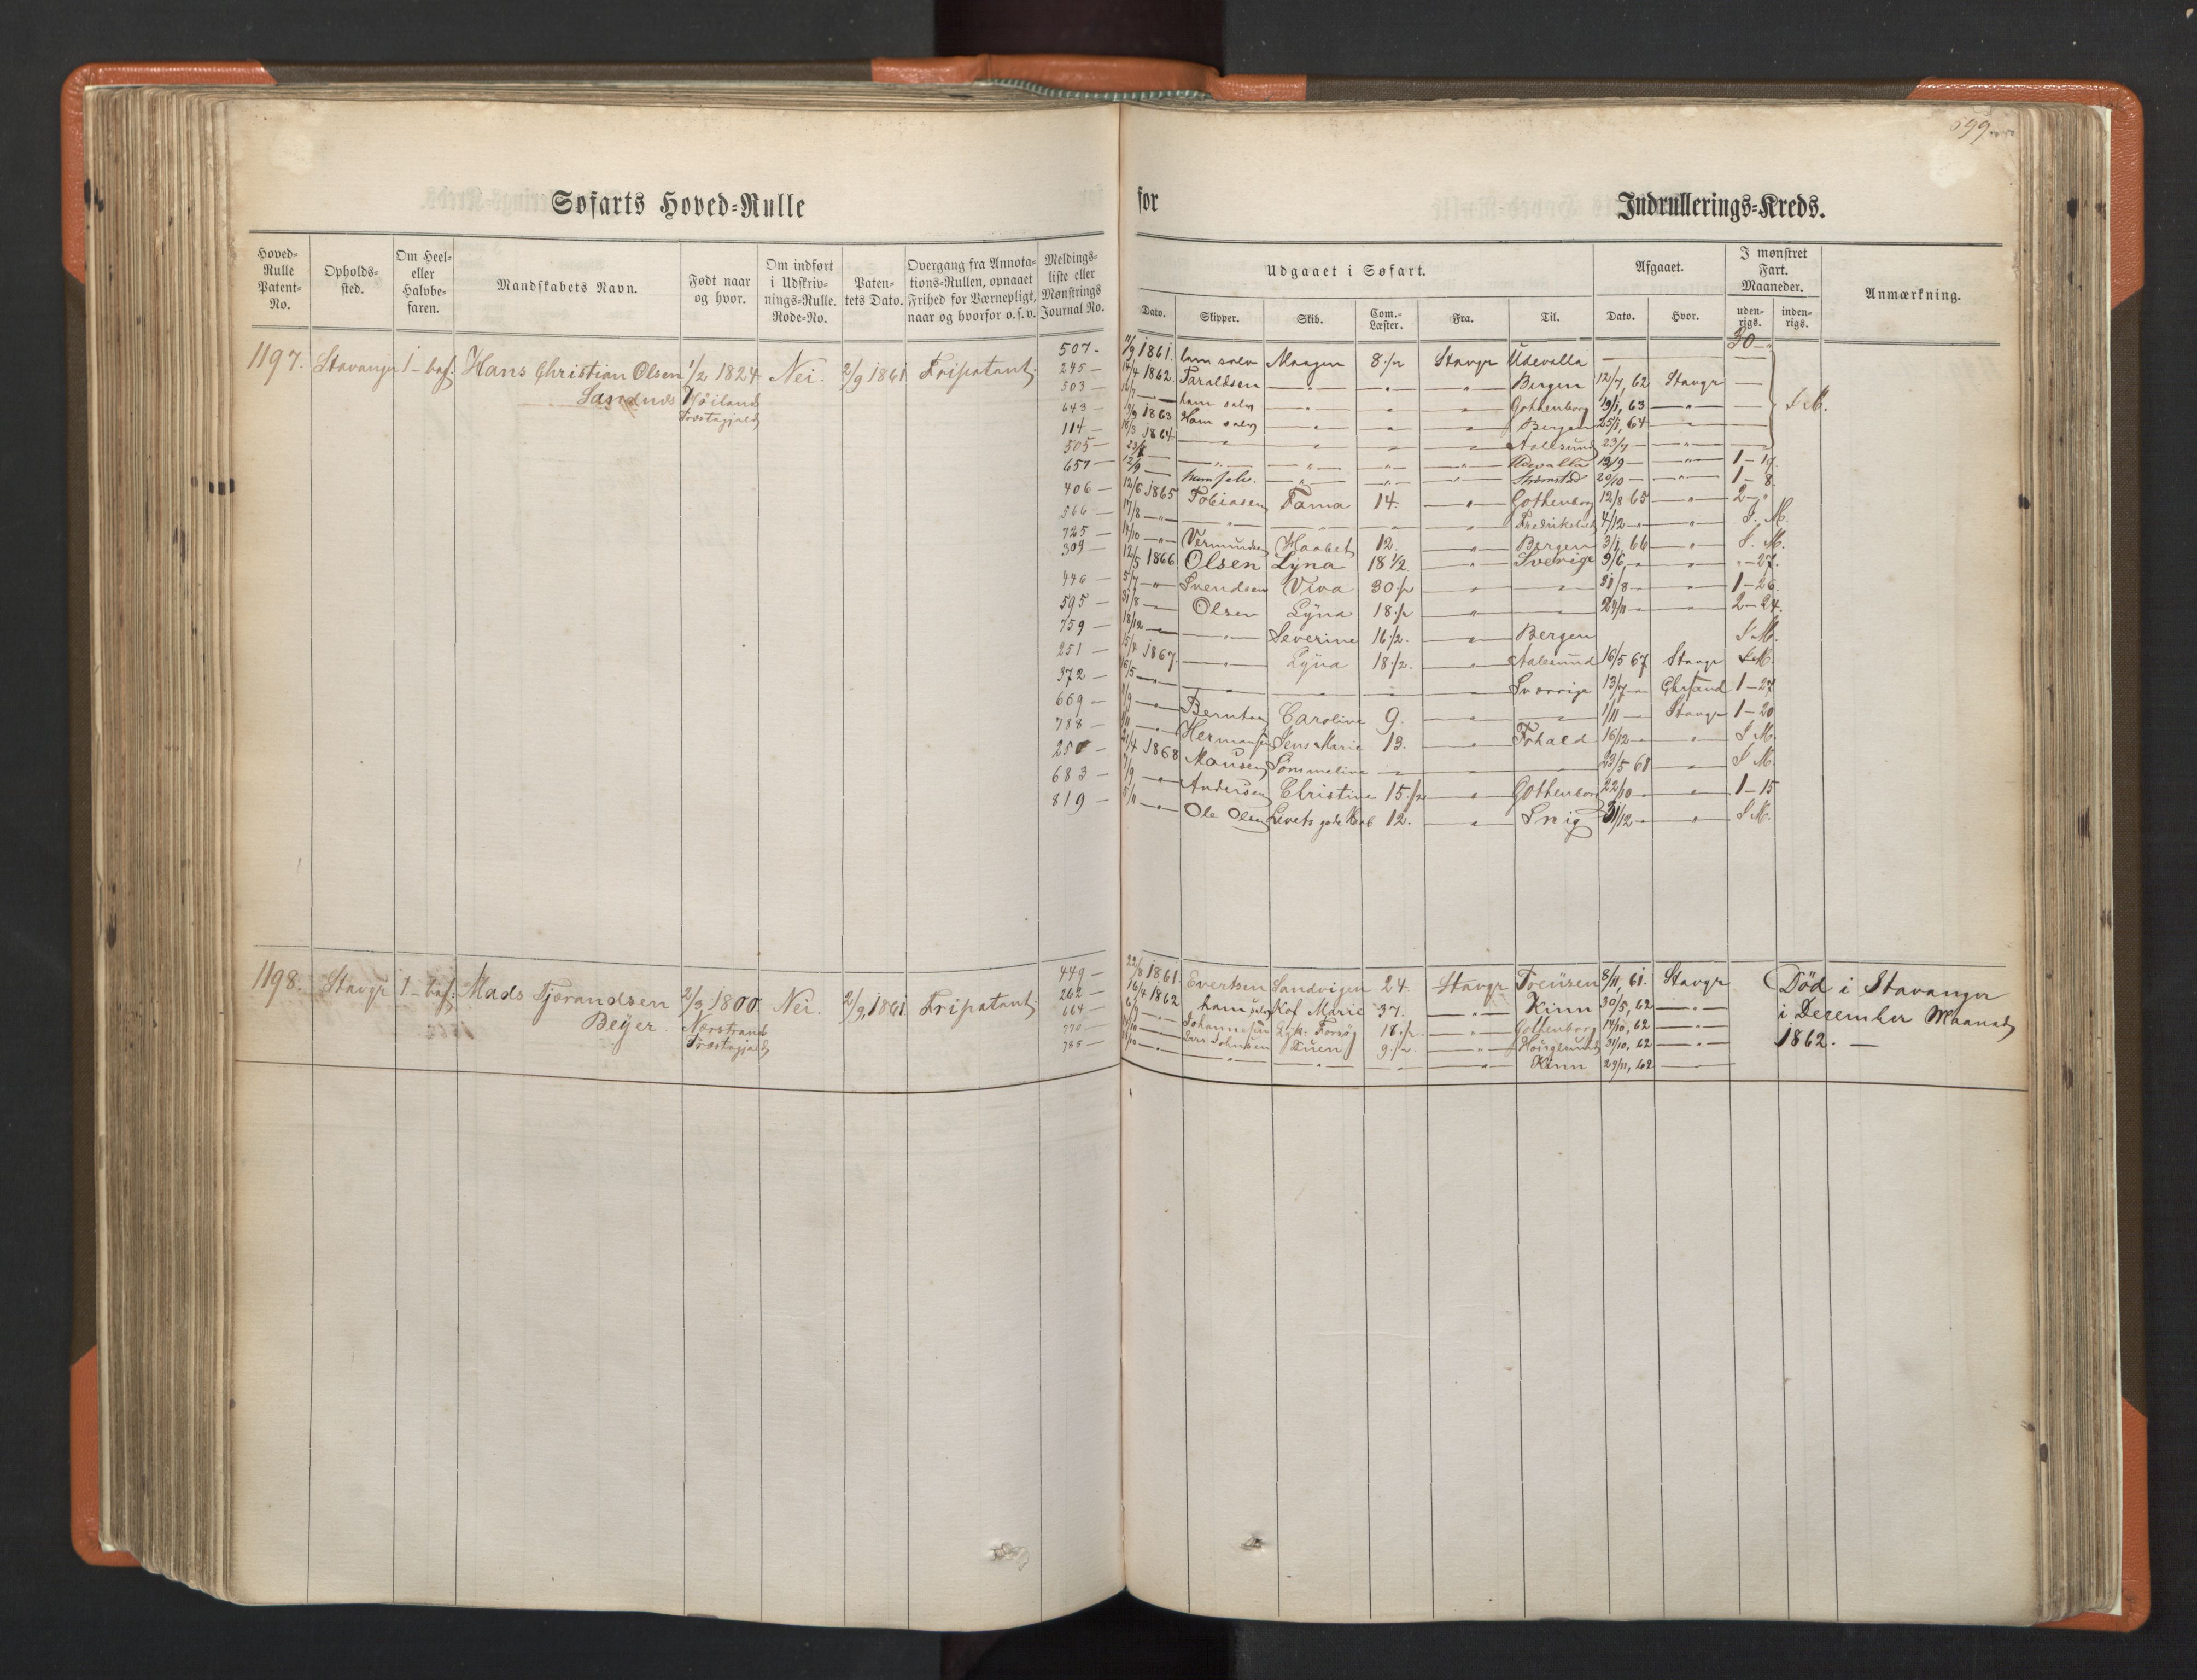 599
Søfarts Hoved-Rulle for Indrullerings-Kreds.
Hoved-Rulle Patent-No. Opholds-sted. Om Heel- eller Halvbe-faren. Mandskabets Navn. Født naar og hvor. Om indført i Udskriv-nings-Rulle. Rode-No. Paten-tets Dato. Overgang fra Annota-tions-Rullen, opnaaet Frihed for Værnepligt, naar og hvorfor o.s.v. Meldings-liste eller Mønstrings Journal No.
Udgaaet i Søfart. Afgaaet. I mønstret Fart. Maaneder. Anmærkning.
Dato. Skipper. Skib. Com.-Læster. Fra. Til. Dato. Hvor. uden-rigs. inden-rigs.
30
1197. Stavanger 1 - bef. Hans Christian Olsen 1/2 1824 Nei. 2/9 1861 Fripatent.
Sandnes Høiland
Præstegjeld
507 - 11/9 1861. ham selv Maagen 8 1/2 Stavgr Udevalla —
245 - 14/4 1862. Taraldsen — " — " " Bergen 12/7, 62 Stavgr —
503 - ham selv — " — " " Gothenborg 19/1, 63 — " — — S M.
643 - 1863 Ham selv — " — " " Bergen 25/1, 64 — " — —
114 - 18/3 1864 — " — " " Aalesund 23/7 — " — —
505 - — " — " — " " Udevalla 13/9 — " — 1 - 17.
657 - 12/9 — ham selv. — " — " " Strømstad 20/10 — " — 1 - 8.
406 - 12/6 1865 Tobiasen Fama 14. " Gothenborg 12/8 65 — " — 2 - "
566 - 17/8 — " — — " — — " Fredrikshald 4/12 — " — S. M.
725 - 14/10 — " — Vermundsen Haabet 12. " Bergen 3/1, 66 — " — S. M.
309 - 12/5 1866 Olsen Lyna 18 1/2 " Sverige 9/6, — " — " - 27.
446 - 5/7 — " — Svendsen Viva 30 1/2 " — " — 31/8 — — 1 - 26
595 - 31/8 — Olsen Lyna 18 1/2 " — " — 24/11 — — 2 - 24.
759 - 18/12 — — " — Severine 16 1/2. " Bergen S M.
251 - 15/4 1867. — " — Lyna 18 1/2. " Aalesund 16/5 67 Stavgr S M.
372 - 16/5 — " — — — — " Sverrige 13/7 — Chrsand 1 - 27
669 - 9/9 — " — Berntsen Caroline 9. — " — — 1/11 — Stavgr 1 - 20
788 - — " — Hermansen Jens Marie 13. — " — Frhald 16/12 — " S M.
250 - 21/4 1868 Monsen Sommeline — " — — " — — 23/5 68 — " — S M.
683 - 7/9 — Andersen Christine 15 1/2 — " — Gothenborg 22/10 — " 1 - 15
819 - 5/11 — " — Ole Olsen Livets gode Haab 12. — " — 31/12 — " S M.
1198. Stavgr 1 - bef. Mads Tjerandsen 2/3 1800. Nei. 2/9, 1861 Fripatent.
Beÿer. Nærstrand
Præstegjeld
449 - 22/8 1861 Evertsen Sandvigen 24. Stavgr 8/11, 61. Stavgr Død i Stavanger
262 - 16/4 1862 ham selv Kof Marie 37. — " — Kinn 30/5, 62 — " — i December Maaned
664 - Johannesen Forsøg 18 1/2. — " — Gothenborg 14/10, 62 — " — 1862. —
770 - Lars Johnsen 9 1/2. — " — 31/10, 62 — " —
785 - — " — — " — — " — Kinn 29/11, 62 —